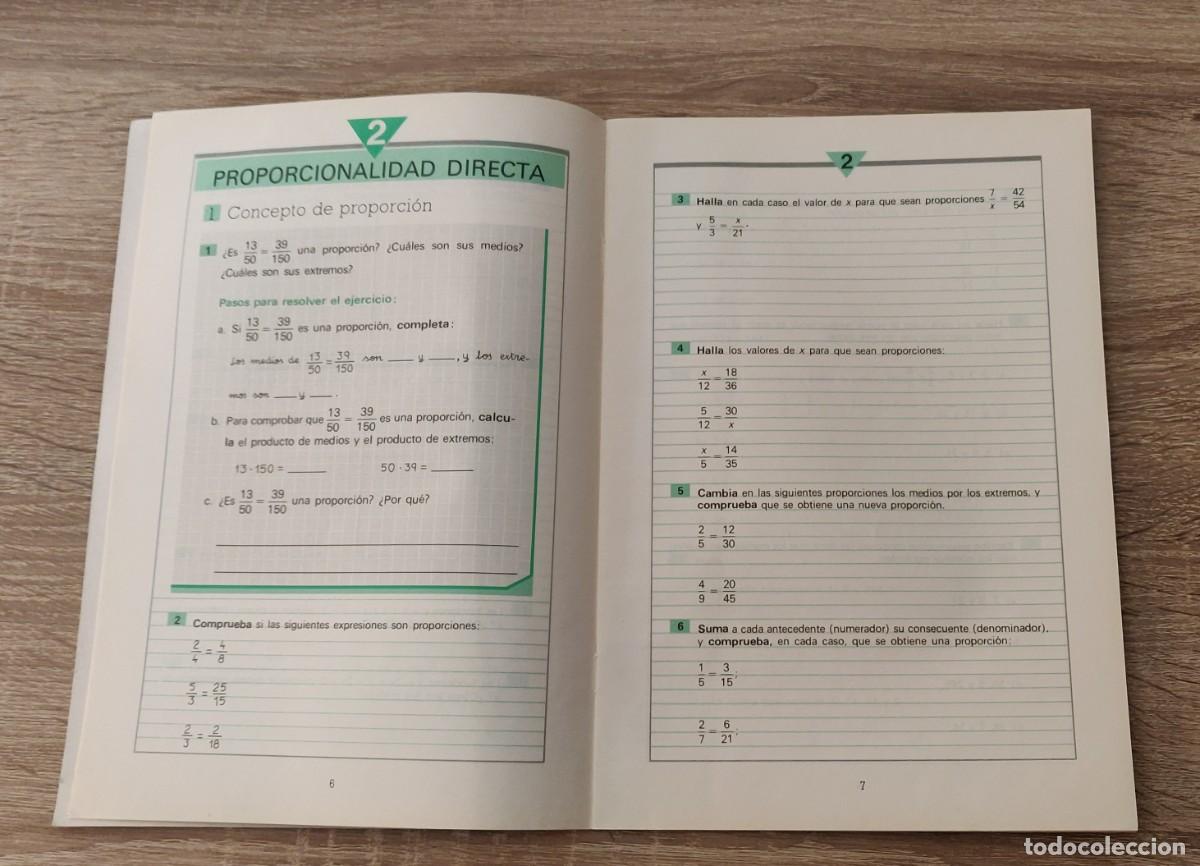 2
PROPORCIONALIDAD DIRECTA
1 Concepto de proporción
1 ¿Es 13/50 = 39/150 una proporción? ¿Cuáles son sus medios?
¿Cuáles son sus extremos?
Pasos para resolver el ejercicio:
a. Si 13/50 = 39/150 es una proporción, completa:
Los medios de 13/50 = 39/150 son ____ y ____, y los extre-
mos son ____ y ____.
b. Para comprobar que 13/50 = 39/150 es una proporción, calcu-
la el producto de medios y el producto de extremos:
13 · 150 = ______ 50 · 39 = ______
c. ¿Es 13/50 = 39/150 una proporción? ¿Por qué?
2 Comprueba si las siguientes expresiones son proporciones:
2/4 = 4/8
5/3 = 25/15
2/3 = 2/18
6
2
3 Halla en cada caso el valor de x para que sean proporciones 7/x = 42/54
y 5/3 = x/21.
4 Halla los valores de x para que sean proporciones:
x/12 = 18/36
5/12 = 30/x
x/5 = 14/35
5 Cambia en las siguientes proporciones los medios por los extremos, y
comprueba que se obtiene una nueva proporción.
2/5 = 12/30
4/9 = 20/45
6 Suma a cada antecedente (numerador) su consecuente (denominador),
y comprueba, en cada caso, que se obtiene una proporción:
1/5 = 3/15;
2/7 = 6/21;
7
todocoleccion